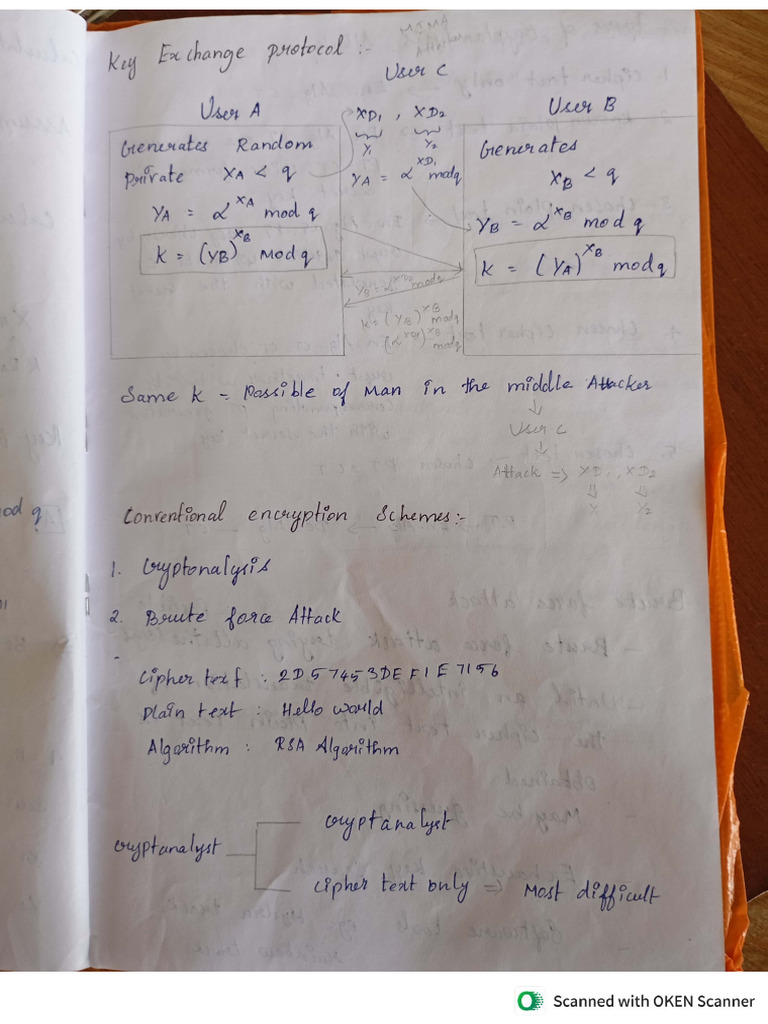 Key Exchange protocol :-
MIMA
User C
User A
XD1 , XD2
User B
Y1
Y2
Generates Random
Private XA < q
YA = α^XA mod q
K = (YB)^XB mod q
YA = α^XD1 mod q
YB = α^XD2 mod q
K = (YB)^XB mod q
Generates
XB < q
YB = α^XB mod q
K = (YA)^XB mod q
Same K = Possible of Man in the middle Attacker
↓
User C
↓
Attack => XD1, XD2
⇓ ⇓
X Y2
Conventional encryption Schemes:-
1. Cryptonalysis
2. Brute force Attack
-
Cipher text : 2D57453DEF1E7156
Plain text : Hello world
Algorithm : RSA Algorithm
cryptanalyst
cryptanalyst
Cipher text only => Most difficult
od q
Scanned with OKEN Scanner